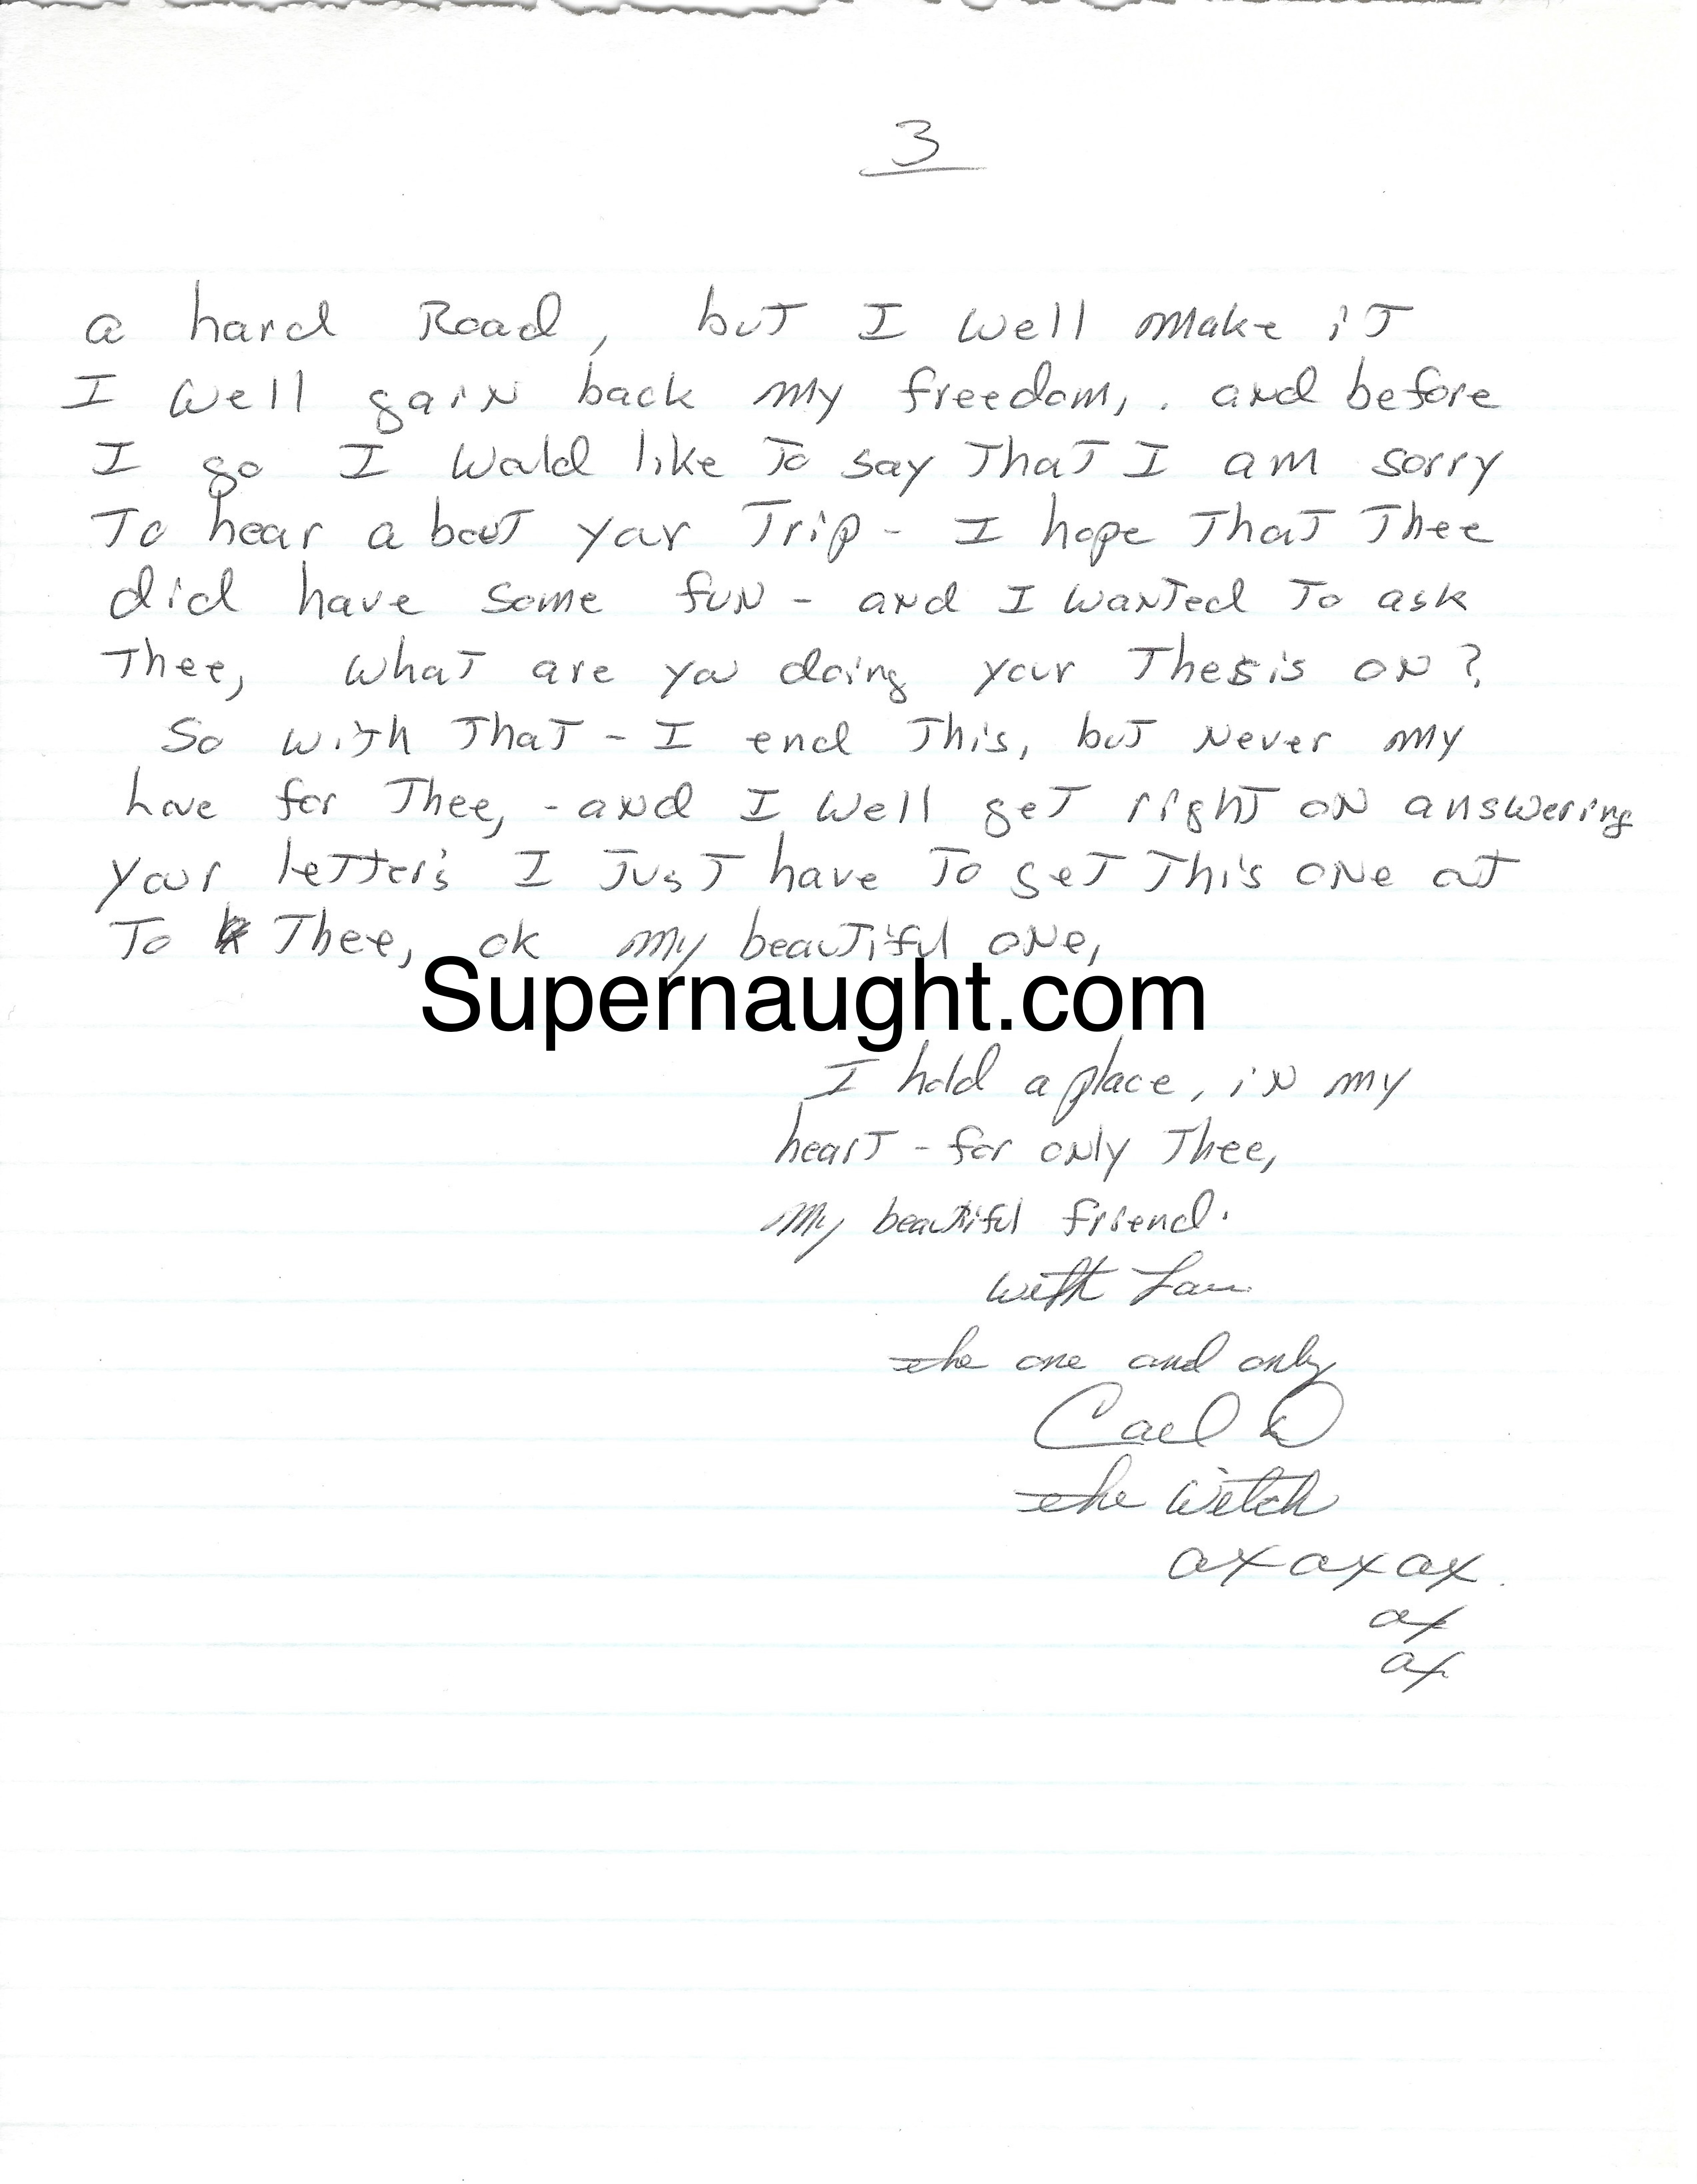 3
a hard Road, but I well make it
I well gain back my freedom, . and before
I go I would like To say That I am sorry
To hear a bout your Trip - I hope That Thee
did have some fun - and I wanted To ask
Thee, what are you doing your Thesis on?
So with That - I end This, but Never my
love for Thee, - and I well get right on answering
your letter's I Just have To get This one out
To Thee, ok my beautiful one,
Supernaught.com
I hold a place, in my
heart - for only Thee,
my beautiful friend.
with Love
the one and only
Carl D
the Witch
ox ox ox
ox
ox